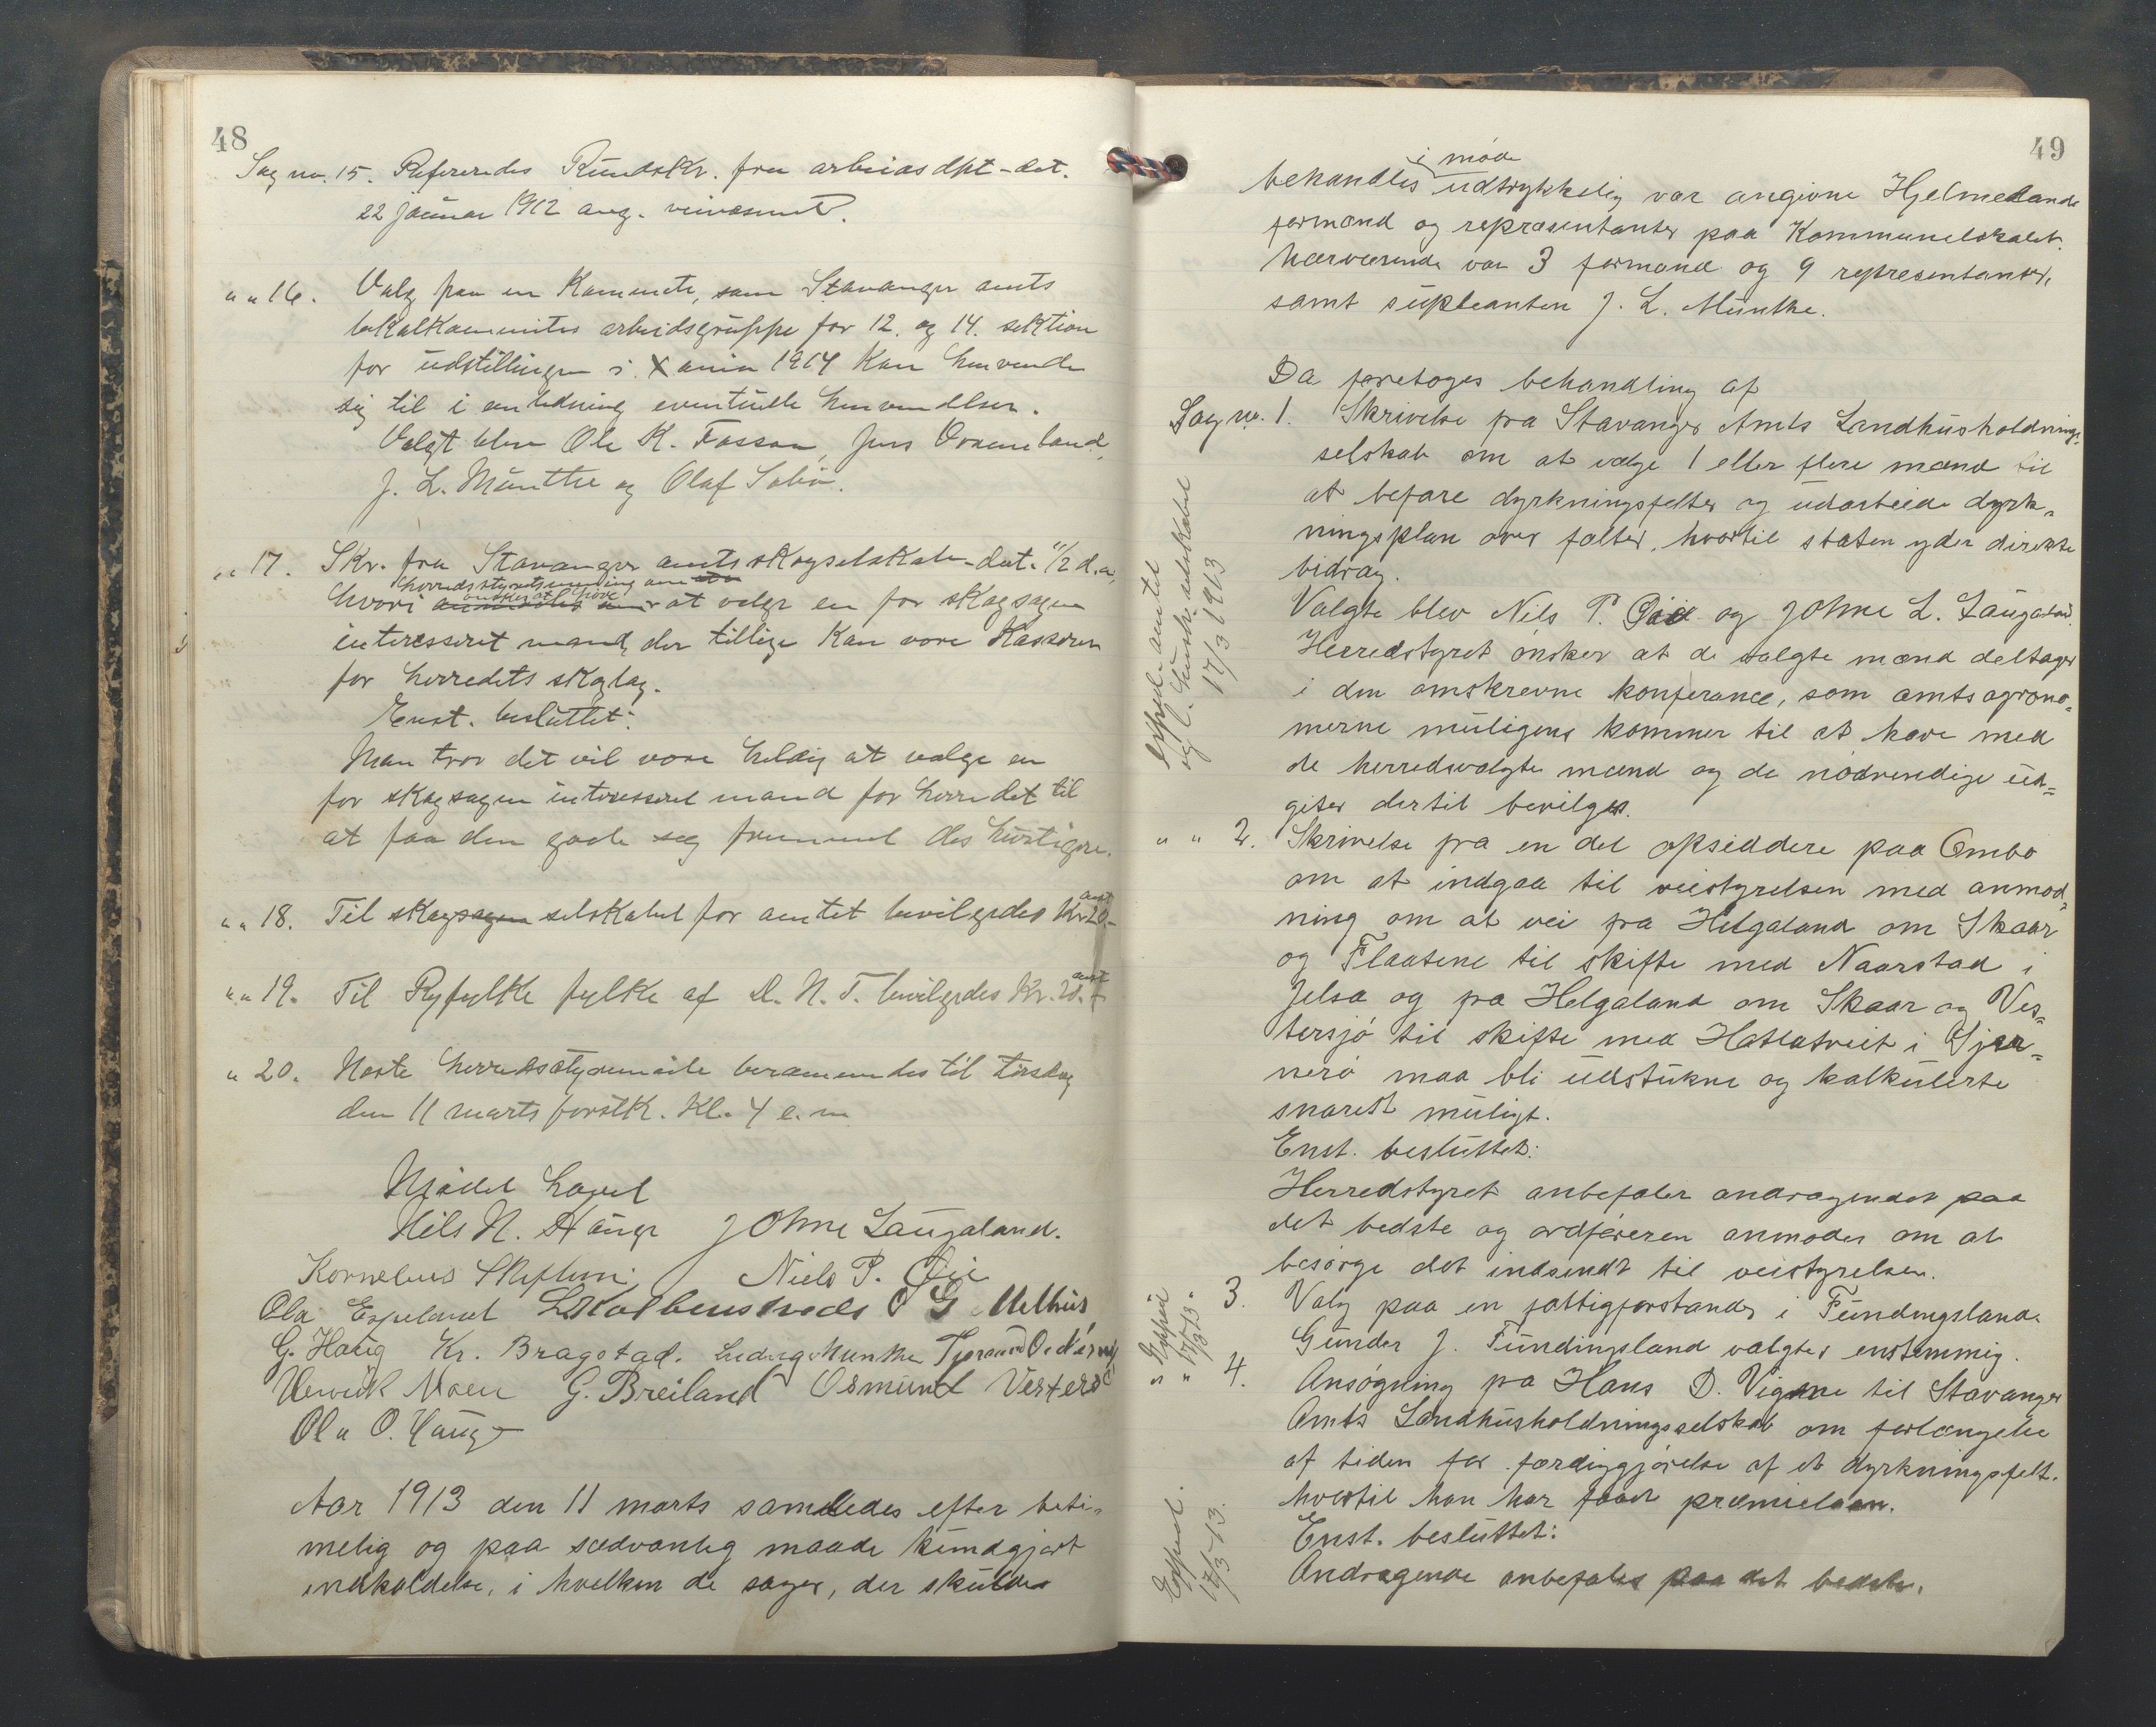 48
Sag no. 15. Refereredes Rundskr. fra arbeidsdpt - dat.
22 januar 1912 ang. veivæsenet.
" " 16. Valg paa en Kommite, som Stavanger amts
lokalkommites arbeidsgruppe for 12. og 14. sektion
for udstillingen i Xania 1914 kan henvende
sig til i anledning eventuelle henvendelser.
Valgt blev Ole K. Fosson, Jens Vormeland,
J. L. Münthe og Olaf Sabø.
" " 17. Skr. fra Stavanger amts skogselskab - dat. 11/2 d.a,
herredsstyrets mening om
ønsker at høve
hvori at velge en for skogsagen
interesseret mand, der tillige kan være Kasserer
for herredets skoglag.
Enst. besluttet:
Man tror det vil være heldig at vælge en
for skogsagen interesseret mand for herredet til
at faa den gode sag fremmet des hurtigere.
" " 18. Til skogsagen selskabet for amtet bevilgedes Kr. 20.- enst
" " 19. Til Ryfylke fylke af D. N. T. bevilgedes Kr. 20.- enst
" 20. Næste herredsstyremøde berammedes til tirsdag
den 11 marts førstk. Kl. 4 e. m
Mødet hævet
Nils N. Hauge Johne Laugaland.
Kornelius Skiftun Niels P. Øie
Ola Espeland L Kolbenstvedt O G Melhus
G. Haug Kr. Bragstad. Ludvig Munthe Tjerand O. Nærvig
Henrik Moen G. Breiland Osmund Vestersø
Ola O. Haug
Aar 1913 den 11 marts samledes efter beti-
melig og paa sædvanlig maade kundgjort
indkaldelse, i hvilken de sager, der skulde
49
i møde
behandles udtrykkelig var angivne Hjelmelands
formænd og repræsentanter paa Kommunelokalet.
Nærværende var 3 formænd og 9 representanter,
samt supleanten J. L. Munthe.
Da foretoges behandling af
Sag no. 1. Skrivelse fra Stavanger Amts Landhusholdnings-
selskab om at vælge 1 eller flere mænd til
at befare dyrkningsfelter og udarbeide dyrk-
ningsplan over felter, hvortil staten yder direkte
bidrag.
Valgte blev Nils P. Øie og Johne L. Laugaland.
Herredstyret ønsker at de valgte mænd deltager
i den omskrevne konferance, som amtsagrono-
merne muligens kommer til at have med
de herredsvalgte mænd og de nødvendige ud-
gifter dertil bevilges.
Exped. amtet
og l. hush. selskabet
17/3 1913
" " 2. Skrivelse fra en del opsiddere paa Ombo
om at indgaa til veistyrelsen med anmod-
ning om at vei fra Helgaland om Skaar
og Flaatene til skifte med Naarstad i
Jelsa og fra Helgaland om Skaar og Ves-
tersjø til skifte med Hatlatveit i Sjer-
nerø maa bli udstukne og kalkulerte
snarest muligt.
Enst. besluttet:
Herredstyret anbefaler andragendet paa
det bedste og ordføreren anmodes om at
besørge det indsendt til veistyrelsen.
Exped
17/3 13.
3. Valg paa en fattigforstander i Fundingsland.
Gunder J. Fundingsland valgtes enstemmig.
" " 4. Ansøgning fra Hans D. Vigane til Stavanger
Amts Landhusholdningsselskab om forlængelse
af tiden for færdiggjørelse af et dyrkningsfelt.
hvortil han har faaet præmielaan.
Enst. besluttet:
Andragende anbefales paa det bedste.
Exped.
17/3 - 13.